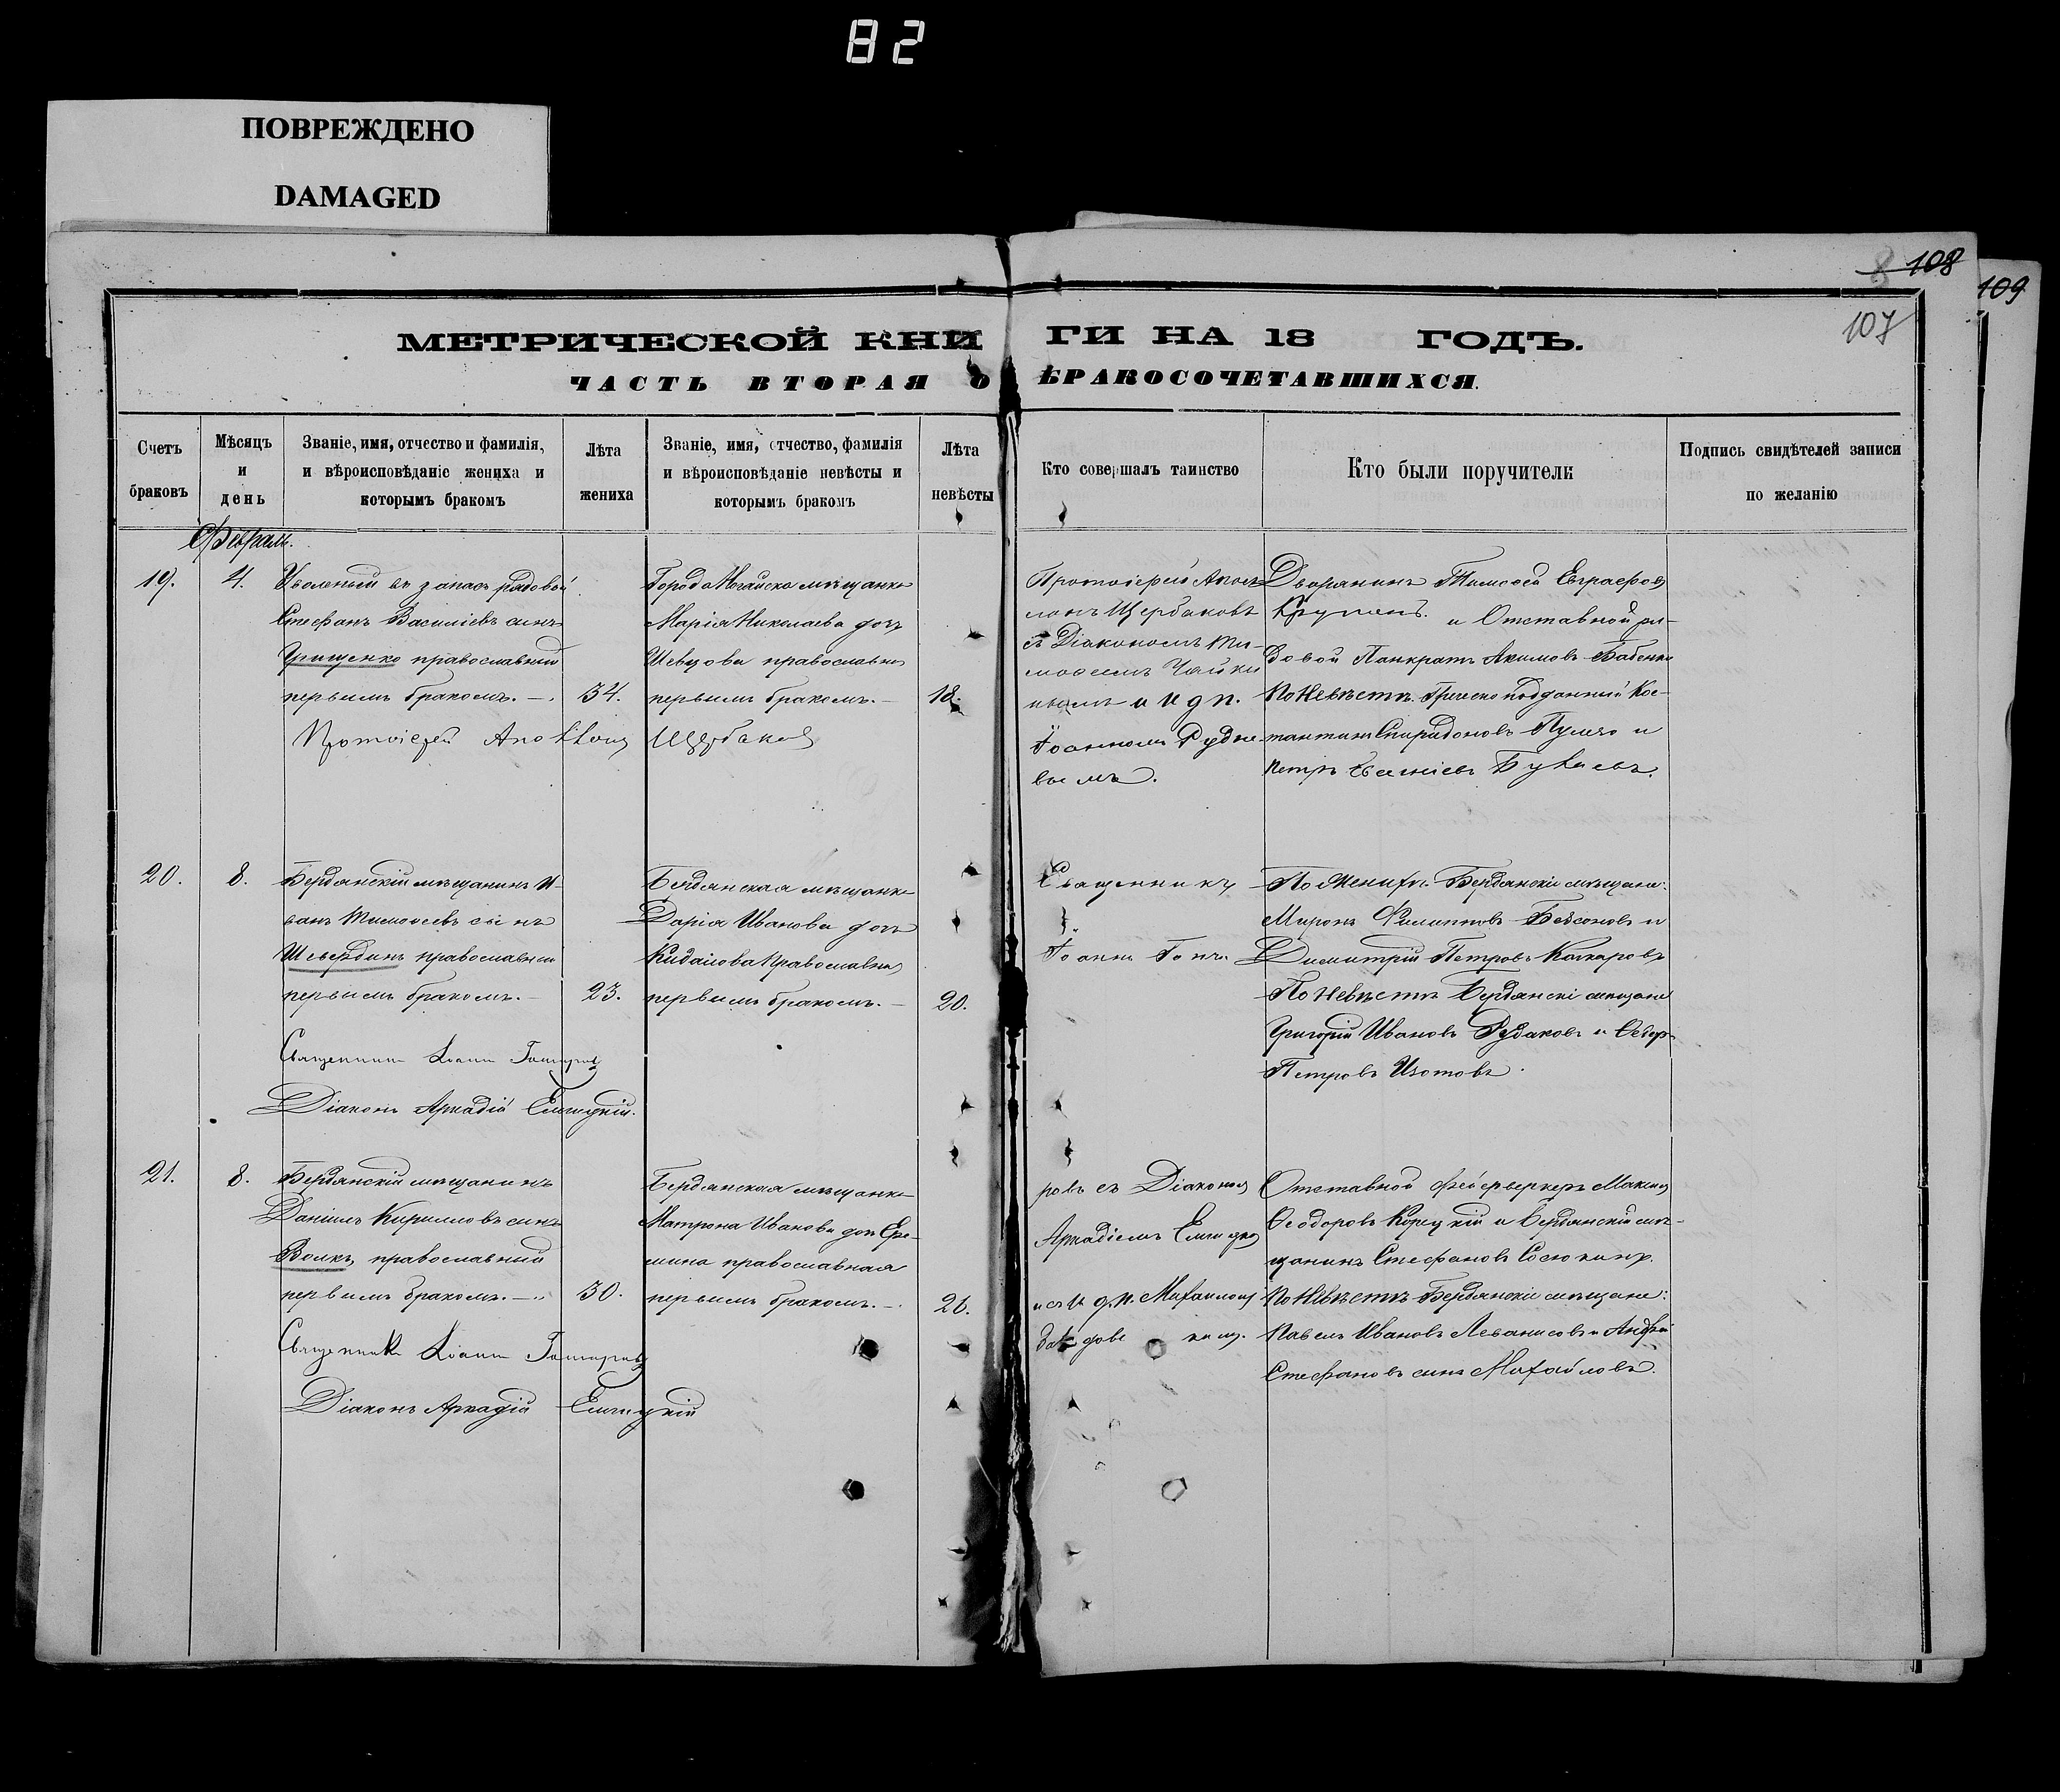 82
ПОВРЕЖДЕНО
DAMAGED
108
109
107
МЕТРИЧЕСКОЙ КНИГИ НА 18 ГОДЪ.
ЧАСТЬ ВТОРАЯ О БРАКОСОЧЕТАВШИХСЯ.
Счетъ браковъ
Мѣсяцъ и день
Званіе, имя, отчество и фамилія, и вѣроисповѣданіе жениха и которымъ бракомъ
Лѣта жениха
Званіе, имя, отчество, фамилія и вѣроисповѣданіе невѣсты и которымъ бракомъ
Лѣта невѣсты
Кто совершалъ таинство
Кто были поручители
Подпись свидѣтелей записи по желанію
19.
4.
въ запасъ рядовой
Стефанъ Васильевъ сынъ
Грищенко православный
первымъ бракомъ. —
34.
Города Ногайска мѣщанка
Марія Николаева дочь
Шевцова православна
первымъ бракомъ. —
18.
Протоіерей Аполлонъ Щербаковъ
Протоіерей Апол-
лонъ Щербаковъ
съ Діакономъ Ти-
мофеемъ
и и д п.
Іоанномъ Рудне-
вымъ.
Дворянинъ Тимофей Евграфов
и Отставной ря-
довой Панкратъ Акимовъ Бабенко
По Невѣстѣ: Греческо подданный Кос-
тантинъ Спиридоновъ и
Петръ
20.
8.
Бердянскій мѣщанинъ И-
ванъ Тимофеевъ сынъ
православный
первымъ бракомъ. —
23.
Бердянская мѣщанка
Дарія Иванова дочь
православна
первымъ бракомъ. —
20.
Священникъ Іоаннъ
Діаконъ Аркадій
Священникъ
Іоаннъ
По Женихѣ: Бердянскіе мѣщане:
Миронъ Филипповъ и
Димитрій Петровъ
По Невѣстѣ Бердянскіе мѣщане
Григорій Ивановъ и Ѳедоръ
Петровъ Изотовъ.
21.
8.
Бердянскій мѣщанинъ
Даніилъ Кирилловъ сынъ
Волкъ, православный
первымъ бракомъ. —
30.
Бердянская мѣщанка
Матрона Иванова дочь Ере-
мина православная
первымъ бракомъ. —
Священникъ Іоаннъ
Діаконъ Аркадій
ровъ съ Діакономъ
Аркадіемъ
и съ и. д. п. Михаиломъ
Отставной фейерверкеръ Максим
Ѳеодоровъ Корецкій и Бердянскій мѣ-
щанинъ Стефановъ
По Невѣстѣ Бердянскіе мѣщане:
Павелъ Ивановъ и Андрей
Стефановъ сынъ Михайловъ.